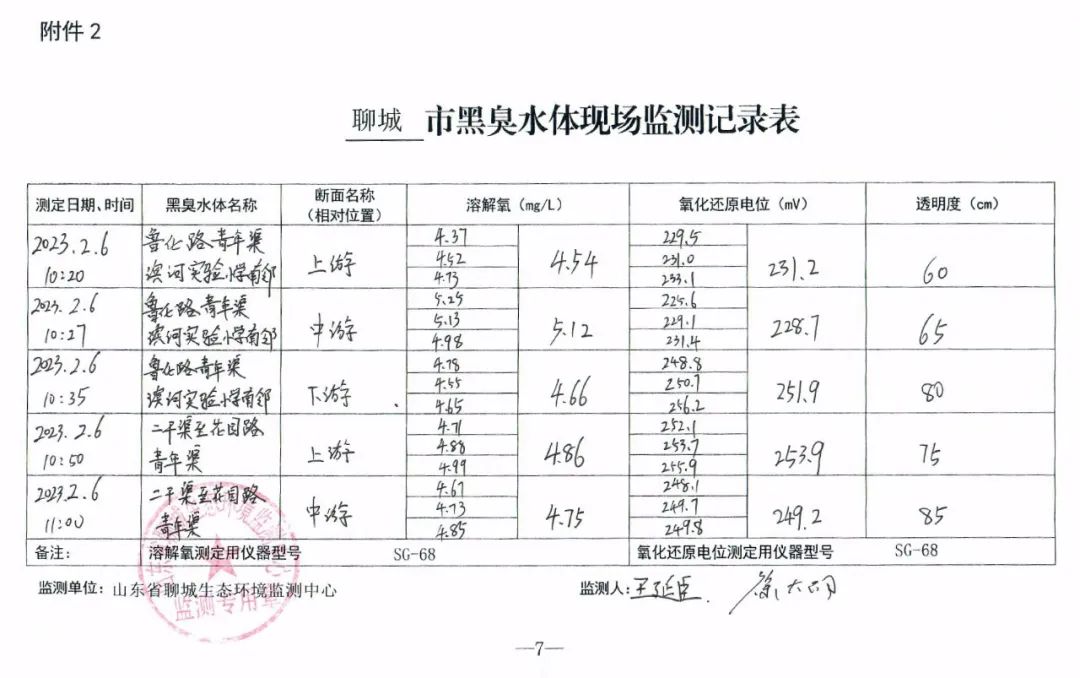 附件2
聊城 市黑臭水体现场监测记录表
测定日期、时间 黑臭水体名称 断面名称（相对位置） 溶解氧（mg/L） 氧化还原电位（mV） 透明度（cm）
2023.2.6 10:20 鲁化路青年渠 滨河实验小学南邻 上游 4.37 4.52 4.73 4.54 229.5 231.0 233.1 231.2 60
2023.2.6 10:27 鲁化路青年渠 滨河实验小学南邻 中游 5.25 5.13 4.98 5.12 225.6 229.1 231.4 228.7 65
2023.2.6 10:35 鲁化路青年渠 滨河实验小学南邻 下游 4.78 4.55 4.65 4.66 248.8 250.7 256.2 251.9 80
2023.2.6 10:50 二干渠至花园路 青年渠 上游 4.71 4.88 4.99 4.86 252.1 253.7 255.9 253.9 75
2023.2.6 11:00 二干渠至花园路 青年渠 中游 4.67 4.73 4.85 4.75 248.1 249.7 249.8 249.2 85
备注： 溶解氧测定用仪器型号 SG-68 氧化还原电位测定用仪器型号 SG-68
监测单位：山东省聊城生态环境监测中心 监测人：王延臣
监测专用章
—7—